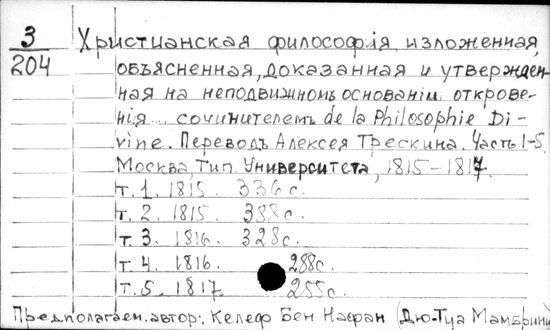 3
204
Христианская философія, изложенная,
объясненная, доказанная и утвержден-
ная на неподвижномъ основаніи открове-
нія... сочинителемъ de la Philosophie Di-
vine. Переводъ Алексея Трескина. Часть 1-5.
Москва, Тип. Университета, 1815-1817.
т. 1. 1815. 336 с.
т. 2. 1815. 388 с.
т. 3. 1816. 328 с.
т. 4. 1816. 288 с.
т. 5. 1817. 255 с.
Предполагаем. автор: Келеф Бен Натан (Дю-Туа Мамбрини